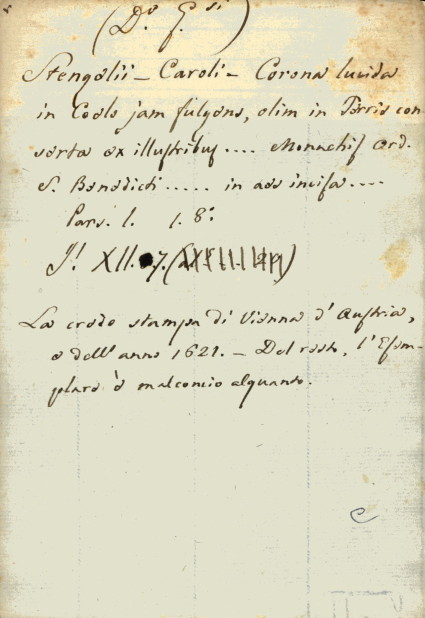 (D.º G.si)
Stengelii – Caroli – Corona lucida
in Coelo jam fulgens, olim in Terris con
serta ex illustribus .... Monachis ord.
S. Benedicti ..... in aes incisa ....
Pars. I. 1. 8.º
XII. 7.
La credo stampa di Vienna d'Austria,
e dell'anno 1621. – Del resto, l'Esem-
plare è malconcio alquanto.
C